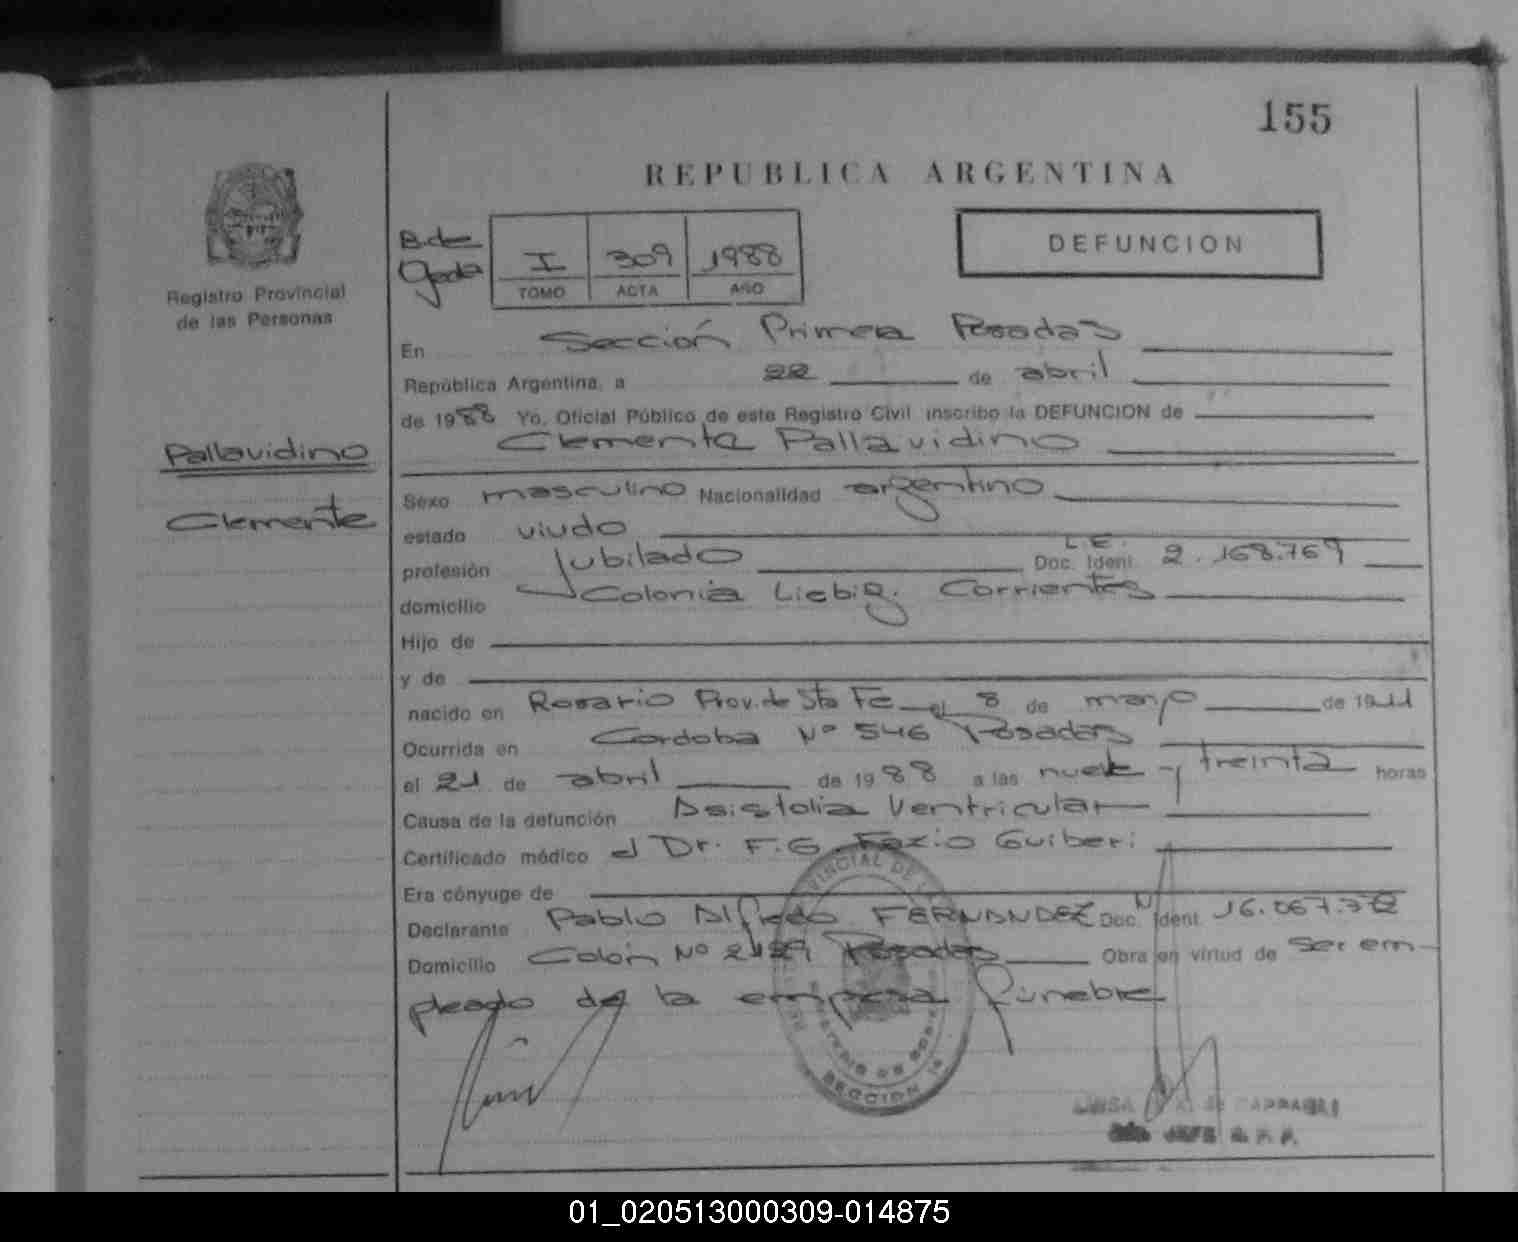 155
REPUBLICA ARGENTINA
Registro Provincial
de las Personas
B. de
Gada
I 309 1988
TOMO ACTA AÑO
DEFUNCION
En Sección Primera Posadas
República Argentina, a 22 de abril
de 1988 Yo, Oficial Público de este Registro Civil inscribo la DEFUNCION de
Clemente Pallavidino
Pallavidino
Clemente
Sexo masculino Nacionalidad argentino
estado viudo
profesión Jubilado Doc. Ident. L.E. 2.168.769
domicilio Colonia Liebig. Corrientes
Hijo de
y de
nacido en Rosario Prov. de Sta Fe el 8 de marzo de 1911
Ocurrida en Cordoba Nº 546 Posadas
el 21 de abril de 1988 a las nueve y treinta horas
Causa de la defunción Asistolia Ventricular
Certificado médico el Dr. F.G. Fazio Guiberi
Era cónyuge de
Declarante Pablo Alfredo FERNANDEZ Doc. Ident.
Domicilio Colón Nº Posadas Obra en virtud de Ser em-
pleado de la empresa fúnebre
SECCION 1ª
JEFE R.P.P.
01_020513000309-014875